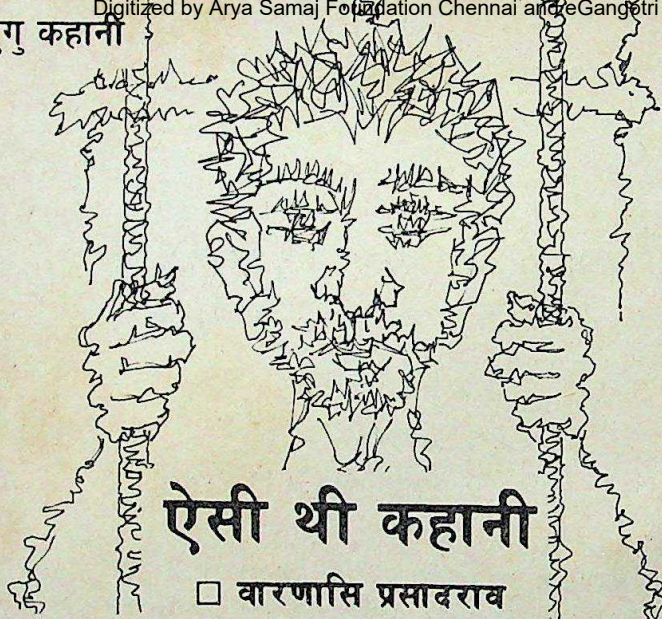 Digitized by Arya Samaj Foundation Chennai and eGangotri
कहानी
ऐसी थी कहानी
□ वारणासि प्रसादराव